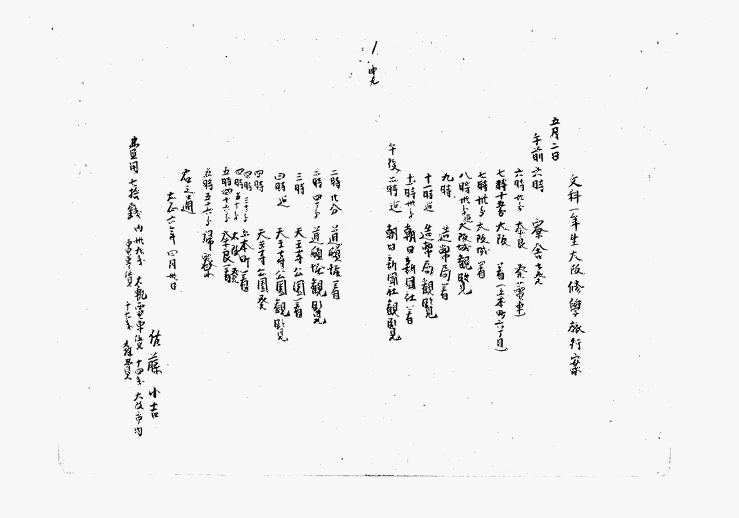 文科一年生大阪修學旅行案
五月二日
午前六時 寮舎発
六時卅分 奈良 発(電車)
七時十五分 大阪 着(上本町六丁目)
七時卅分 大阪城着
八時卅分迄 大阪城観覧
九時 造幣局着
十一時迄 造幣局観覧
十一時卅分 朝日新聞社着
午後一時迄 朝日新聞社観覧
二時 道頓堀着
二時四十分 道頓堀観覧
三時 天王寺公園着
四時迄 天王寺公園観覧
四時 天王寺公園発
四時三十分 上本町着
四時五十分 大阪発
五時四十分 奈良着
五時五十分 帰寮
右之通
大正 年四月卅日
佐藤小吉
費用七拾銭 内 大軌電車賃 大阪市内
電車賃